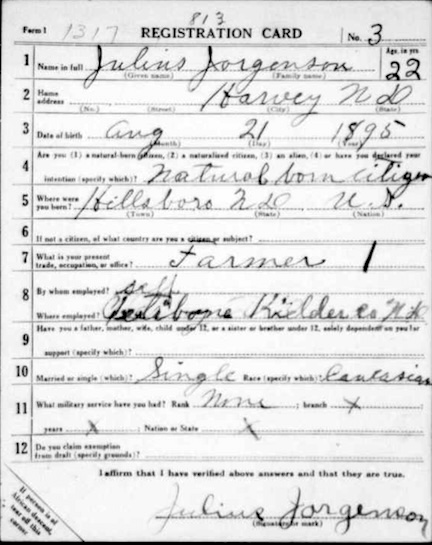 813
Form 1 1317 REGISTRATION CARD No. 3
1 Name in full Julius Jorgenson Age, in yrs 22
(Given name) (Family name)
2 Home address Harvey N D
(No.) (Street) (City) (State)
3 Date of birth Aug 21 1895
(Month) (Day) (Year)
4 Are you (1) a natural-born citizen, (2) a naturalized citizen, (3) an alien, (4) or have you declared your
intention (specify which)? Natural born citizen
5 Where were you born? Hillsboro N D U.S.
(Town) (State) (Nation)
6 If not a citizen, of what country are you a citizen or subject?
7 What is your present trade, occupation, or office? Farmer 1
8 By whom employed? self
Where employed? Kielder Co N D
9 Have you a father, mother, wife, child under 12, or a sister or brother under 12, solely dependent on you for
support (specify which)?
10 Married or single (which)? Single Race (specify which)? Caucasian
11 What military service have you had? Rank None ; branch x
years x ; Nation or State x
12 Do you claim exemption from draft (specify grounds)?
I affirm that I have verified above answers and that they are true.
Julius Jorgenson
(Signature or mark)
If person is of
African descent,
tear off this
corner